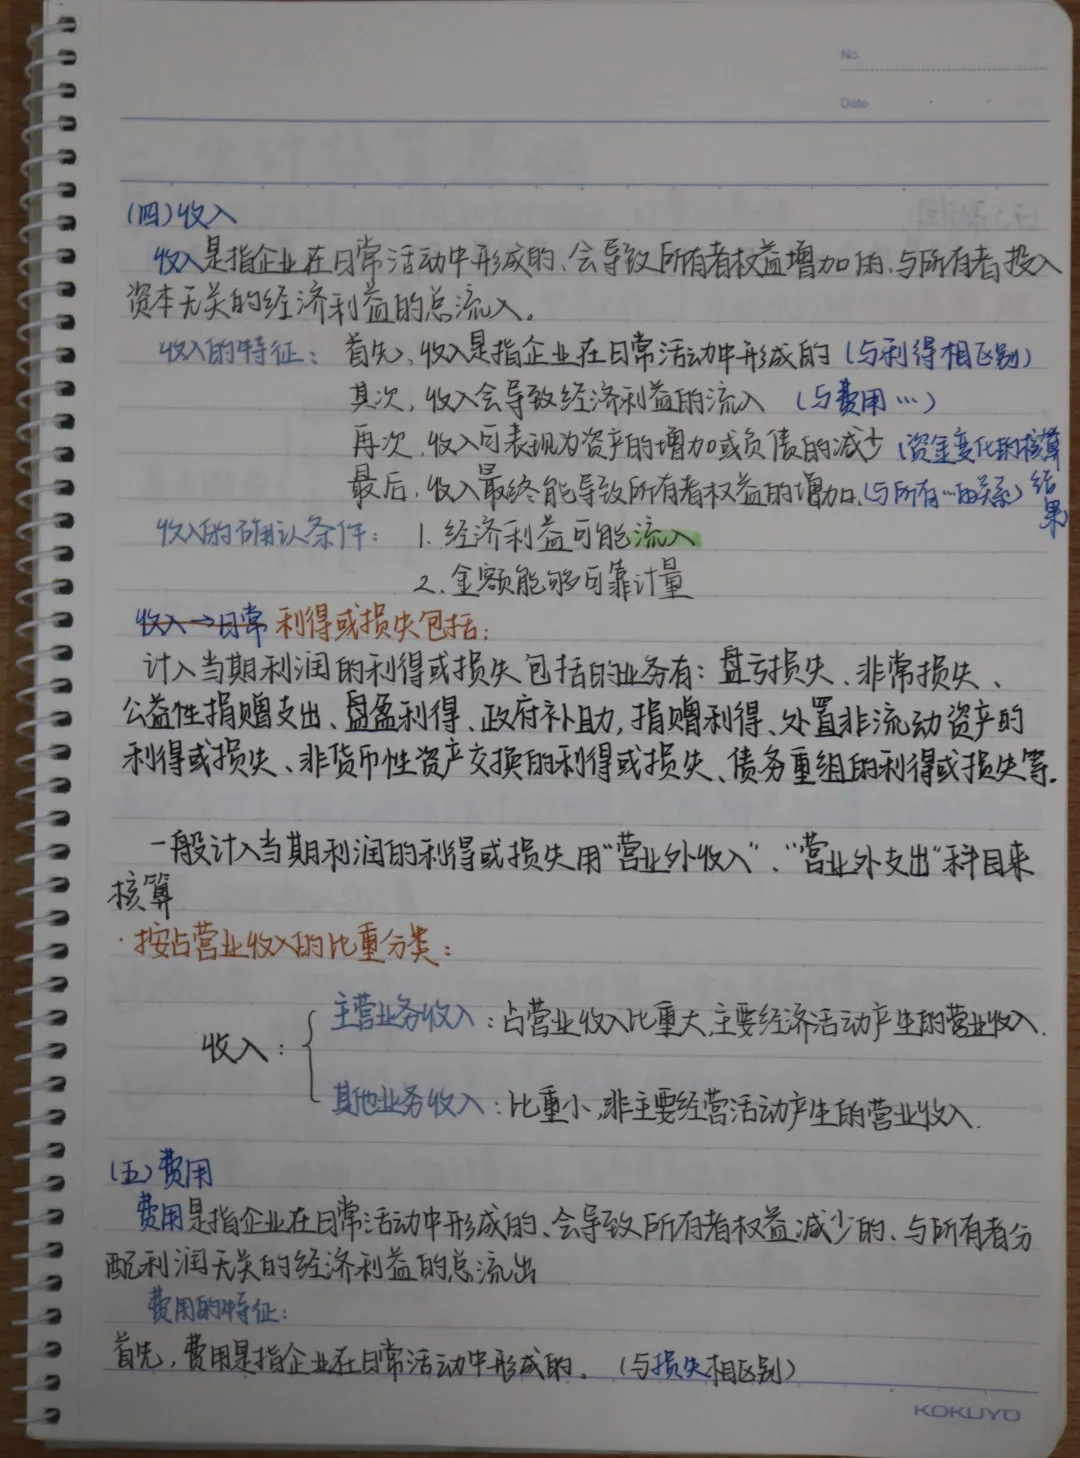 No.
Date
(四)收入
收入是指企业在日常活动中形成的、会导致所有者权益增加的、与所有者投入
资本无关的经济利益的总流入。
收入的特征：首先，收入是指企业在日常活动中形成的（与利得相区别）
其次，收入会导致经济利益的流入（与费用…）
再次，收入可表现为资产的增加或负债的减少（资金变化的核算
最后，收入最终能导致所有者权益的增加。（与所有…的关系）结果
收入的确认条件：1.经济利益可能流入
2.金额能够可靠计量
收入→日常 利得或损失包括：
计入当期利润的利得或损失包括的业务有：盘亏损失、非常损失、
公益性捐赠支出、盘盈利得、政府补助，捐赠利得、处置非流动资产的
利得或损失、非货币性资产交换的利得或损失、债务重组的利得或损失等.
一般计入当期利润的利得或损失用“营业外收入”、“营业外支出”科目来
核算
·按占营业收入的比重分类：
主营业务收入：占营业收入比重大,主要经济活动产生的营业收入.
收入：
其他业务收入：比重小,非主要经营活动产生的营业收入.
(五)费用
费用是指企业在日常活动中形成的、会导致所有者权益减少的、与所有者分
配利润无关的经济利益的总流出
费用的特征：
首先，费用是指企业在日常活动中形成的。（与损失相区别）
KOKUYO